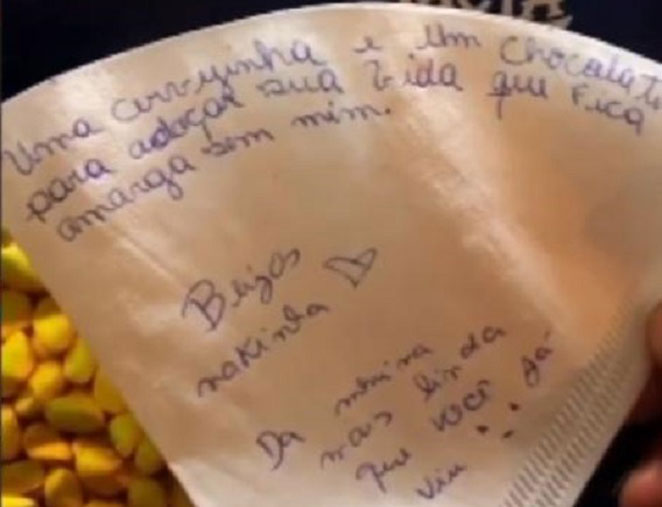 Uma cervejinha e um chocolate
para adoçar sua vida que fica
amarga sem mim.
Beijos
nakinha
Da minina
mais linda
que você já
viu